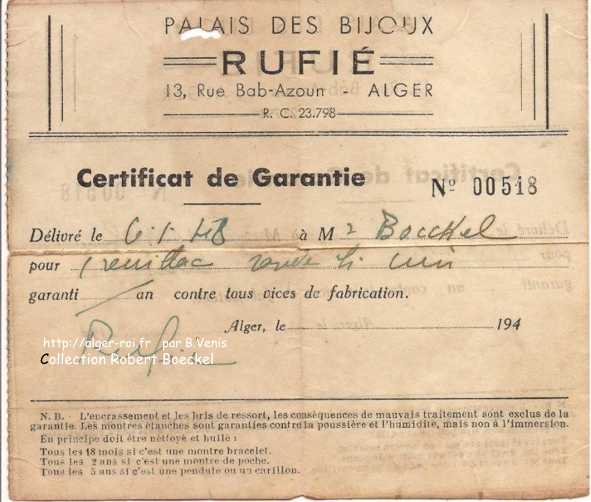 PALAIS DES BIJOUX
RUFIÉ
13, Rue Bab-Azoun - ALGER
R. C. 23.798
Certificat de Garantie
Nº 00518
Délivré le 6.1.48 à Mr Boeckel
pour
garanti 1 an contre tous vices de fabrication.
Alger, le 194
http://alger-roi.fr par B.Venis
Collection Robert Boeckel
Rufié
N. B. - L'encrassement et les bris de ressort, les conséquences de mauvais traitement sont exclus de la
garantie. Les montres étanches sont garanties contre la poussière et l'humidité, mais non à l'immersion.
En principe doit être nettoyé et huilé :
Tous les 18 mois si c'est une montre bracelet.
Tous les 2 ans si c'est une montre de poche.
Tous les 5 ans si c'est une pendule ou un carillon.